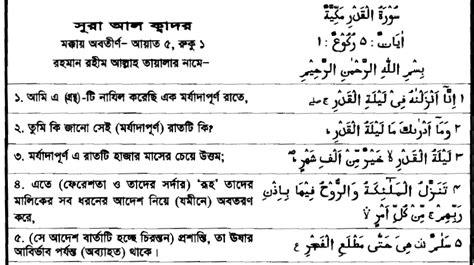 সূরা আল ক্বাদর
মক্কায় অবতীর্ণ- আয়াত ৫, রুকু ১
রহমান রহীম আল্লাহ তায়ালার নামে-
سُوْرَةُ الْقَدْرِ مَكِّيَّةٌ
اٰيَاتُ : ٥ رُكُوْعُ : ١
بِسْمِ اللّٰهِ الرَّحْمٰنِ الرَّحِيْمِ
১. আমি এ (গ্রন্থ)-টি নাযিল করেছি এক মর্যাদাপূর্ণ রাতে,
١ اِنَّا اَنْزَلْنٰهُ فِىْ لَيْلَةِ الْقَدْرِ
২. তুমি কি জানো সেই (মর্যাদাপূর্ণ) রাতটি কি?
٢ وَمَا اَدْرٰىكَ مَا لَيْلَةُ الْقَدْرِ
৩. মর্যাদাপূর্ণ এ রাতটি হাজার মাসের চেয়ে উত্তম;
٣ لَيْلَةُ الْقَدْرِ لا خَيْرٌ مِّنْ اَلْفِ شَهْرٍ
৪. এতে (ফেরেশতা ও তাদের সর্দার) 'রূহ' তাদের
মালিকের সব ধরনের আদেশ নিয়ে (যমীনে) অবতরণ
করে,
٤ تَنَزَّلُ الْمَلٰٓئِكَةُ وَالرُّوْحُ فِيْهَا بِاِذْنِ
رَبِّهِمْ ج مِنْ كُلِّ اَمْرٍ
৫. (সে আদেশ বার্তাটি হচ্ছে চিরন্তন) প্রশান্তি, তা ঊষার
আবির্ভাব পর্যন্ত (অব্যাহত) থাকে।
٥ سَلٰمٌ هِىَ حَتّٰى مَطْلَعِ الْفَجْرِ ع